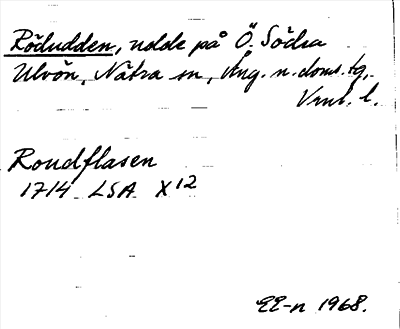 Rödudden, udde på Ö. Södra
Ulvön, Nätra sn, Ång. n. doms. tg.
Vnrl. l.
Roudflasen
1714 LSA X12
EE-n 1968.